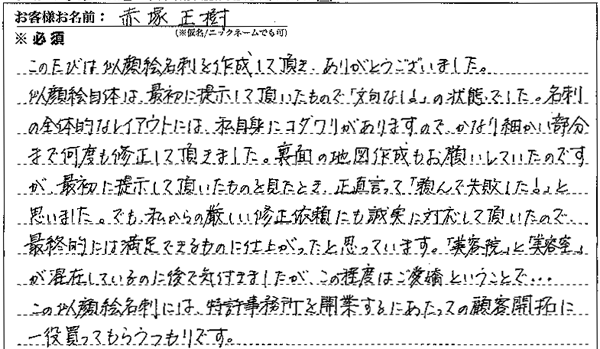 お客様お名前： 赤塚正樹
※必須 （※仮名/ニックネームでも可）
このたびは似顔絵名刺を作成して頂き、ありがとうございました。
似顔絵自体は、最初に提示して頂いたもので「文句なし！」の状態でした。名刺
の全体的なレイアウトには、私自身にコダワリがありますので、かなり細かい部分
まで何度も修正して頂きました。裏面の地図作成もお願いしていたのです
が、最初に提示して頂いたものを見たとき、正直言って「頼んで失敗した！」と
思いました。でも、私からの厳しい修正依頼にも誠実に対応して頂いたので、
最終的には満足できるものに仕上がったと思っています。「美容院」と「美容室」
が混在しているのに後で気付きましたが、この程度はご愛嬌ということで…
この似顔絵名刺には、特許事務所を開業するにあたっての顧客開拓に
一役買ってもらうつもりです。